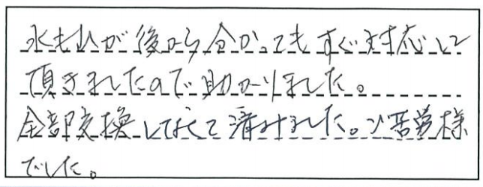 水もれが後から分かってもすぐ対応して
頂きましたので助かりました。
全部交換しなくて済みました。ご苦労様
でした。